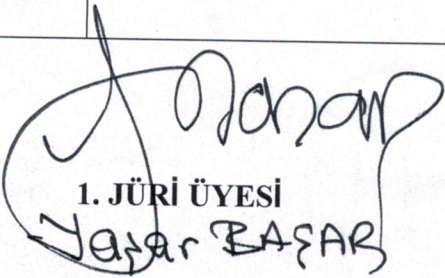 1. JÜRİ ÜYESİ
Yaşar BAŞAR